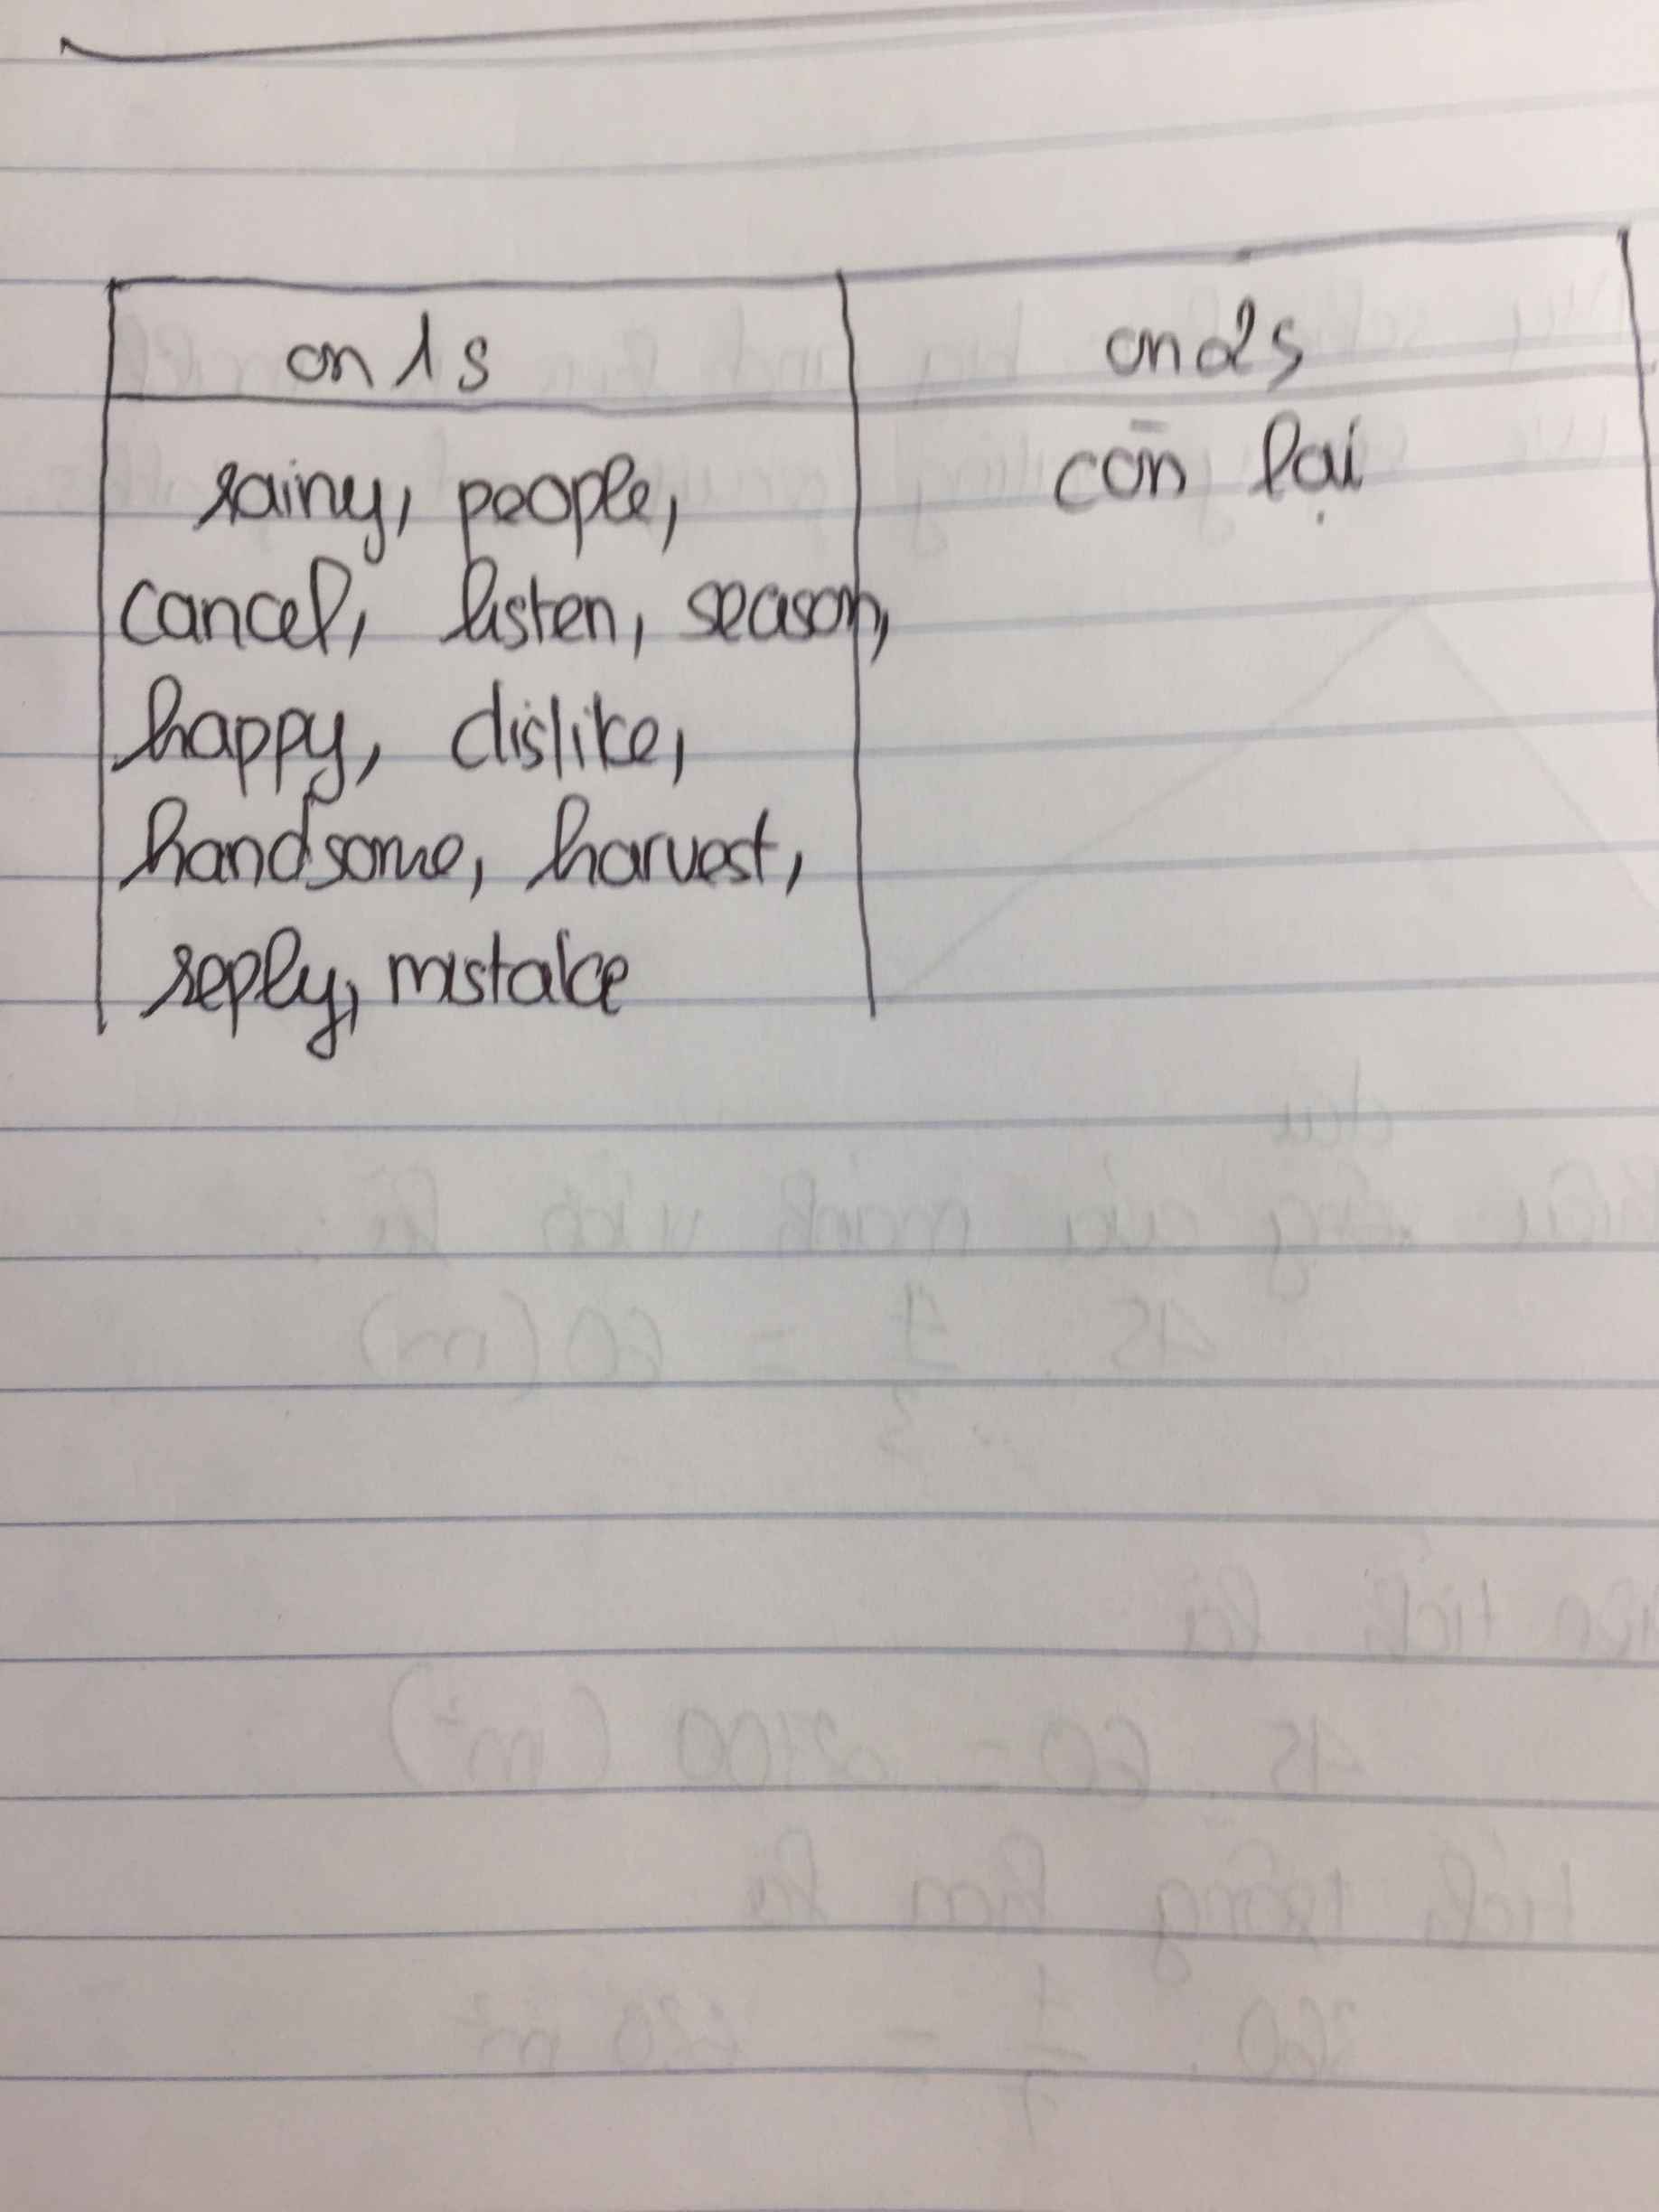 on 1 s
on 2 s
rainy, people,
cancel, listen, season,
happy, dislike,
handsome, harvest,
reply, mistake
còn lại